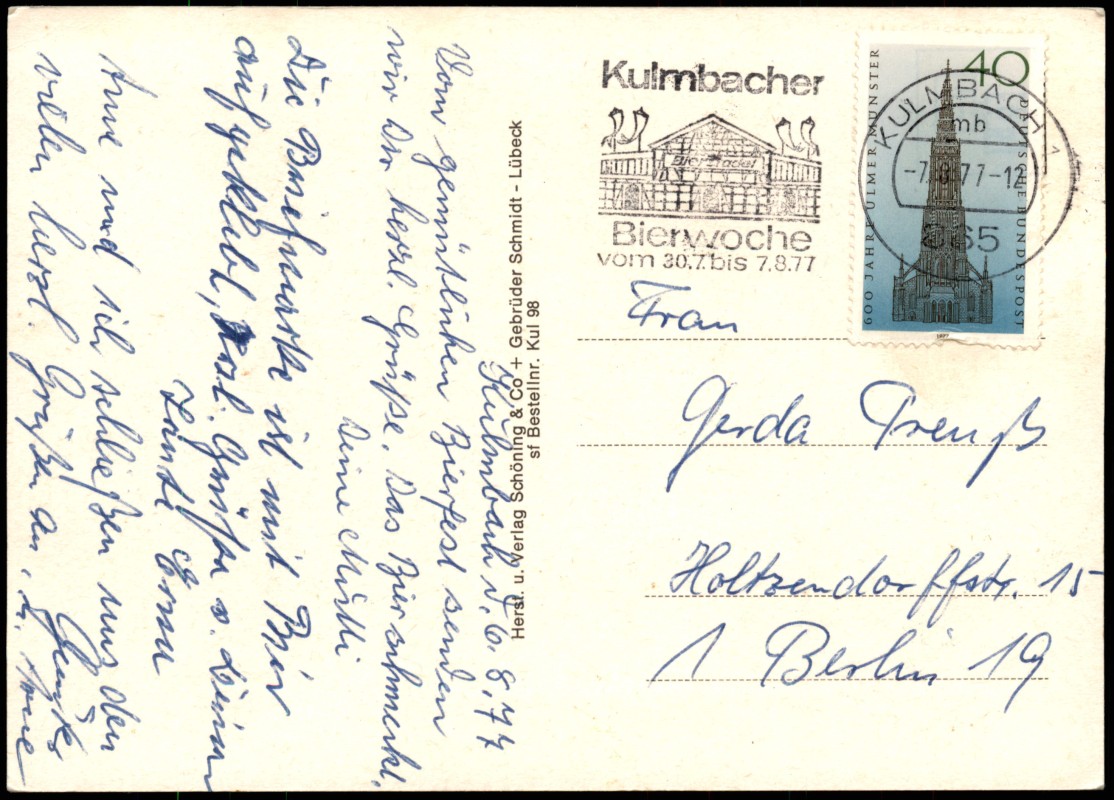 Kulmbach d. 6.8.77
Vom gemütlichen Bierfest senden
wir Dir herzl. Grüße. Das Bier schmeckt.
Deine Mutti
Die Briefmarke ist mit Bier
aufgeklebt, herzl. Grüße v. Deiner
Tante Erna
Anne und ich schließen uns den
vielen herzl. Grüßen an, Anne
Herst. u. Verlag Schöning & Co + Gebrüder Schmidt - Lübeck
sf Bestellnr. Kul 98
Kulmbacher
Bierwoche
vom 30.7. bis 7.8.77
40
600 JAHRE ULMER MÜNSTER
DEUTSCHE BUNDESPOST
1977
KULMBACH 1
mb
-7.8.77-12
865
Frau
Gerda Preuß
Holtzendorffstr. 15
1 Berlin 19